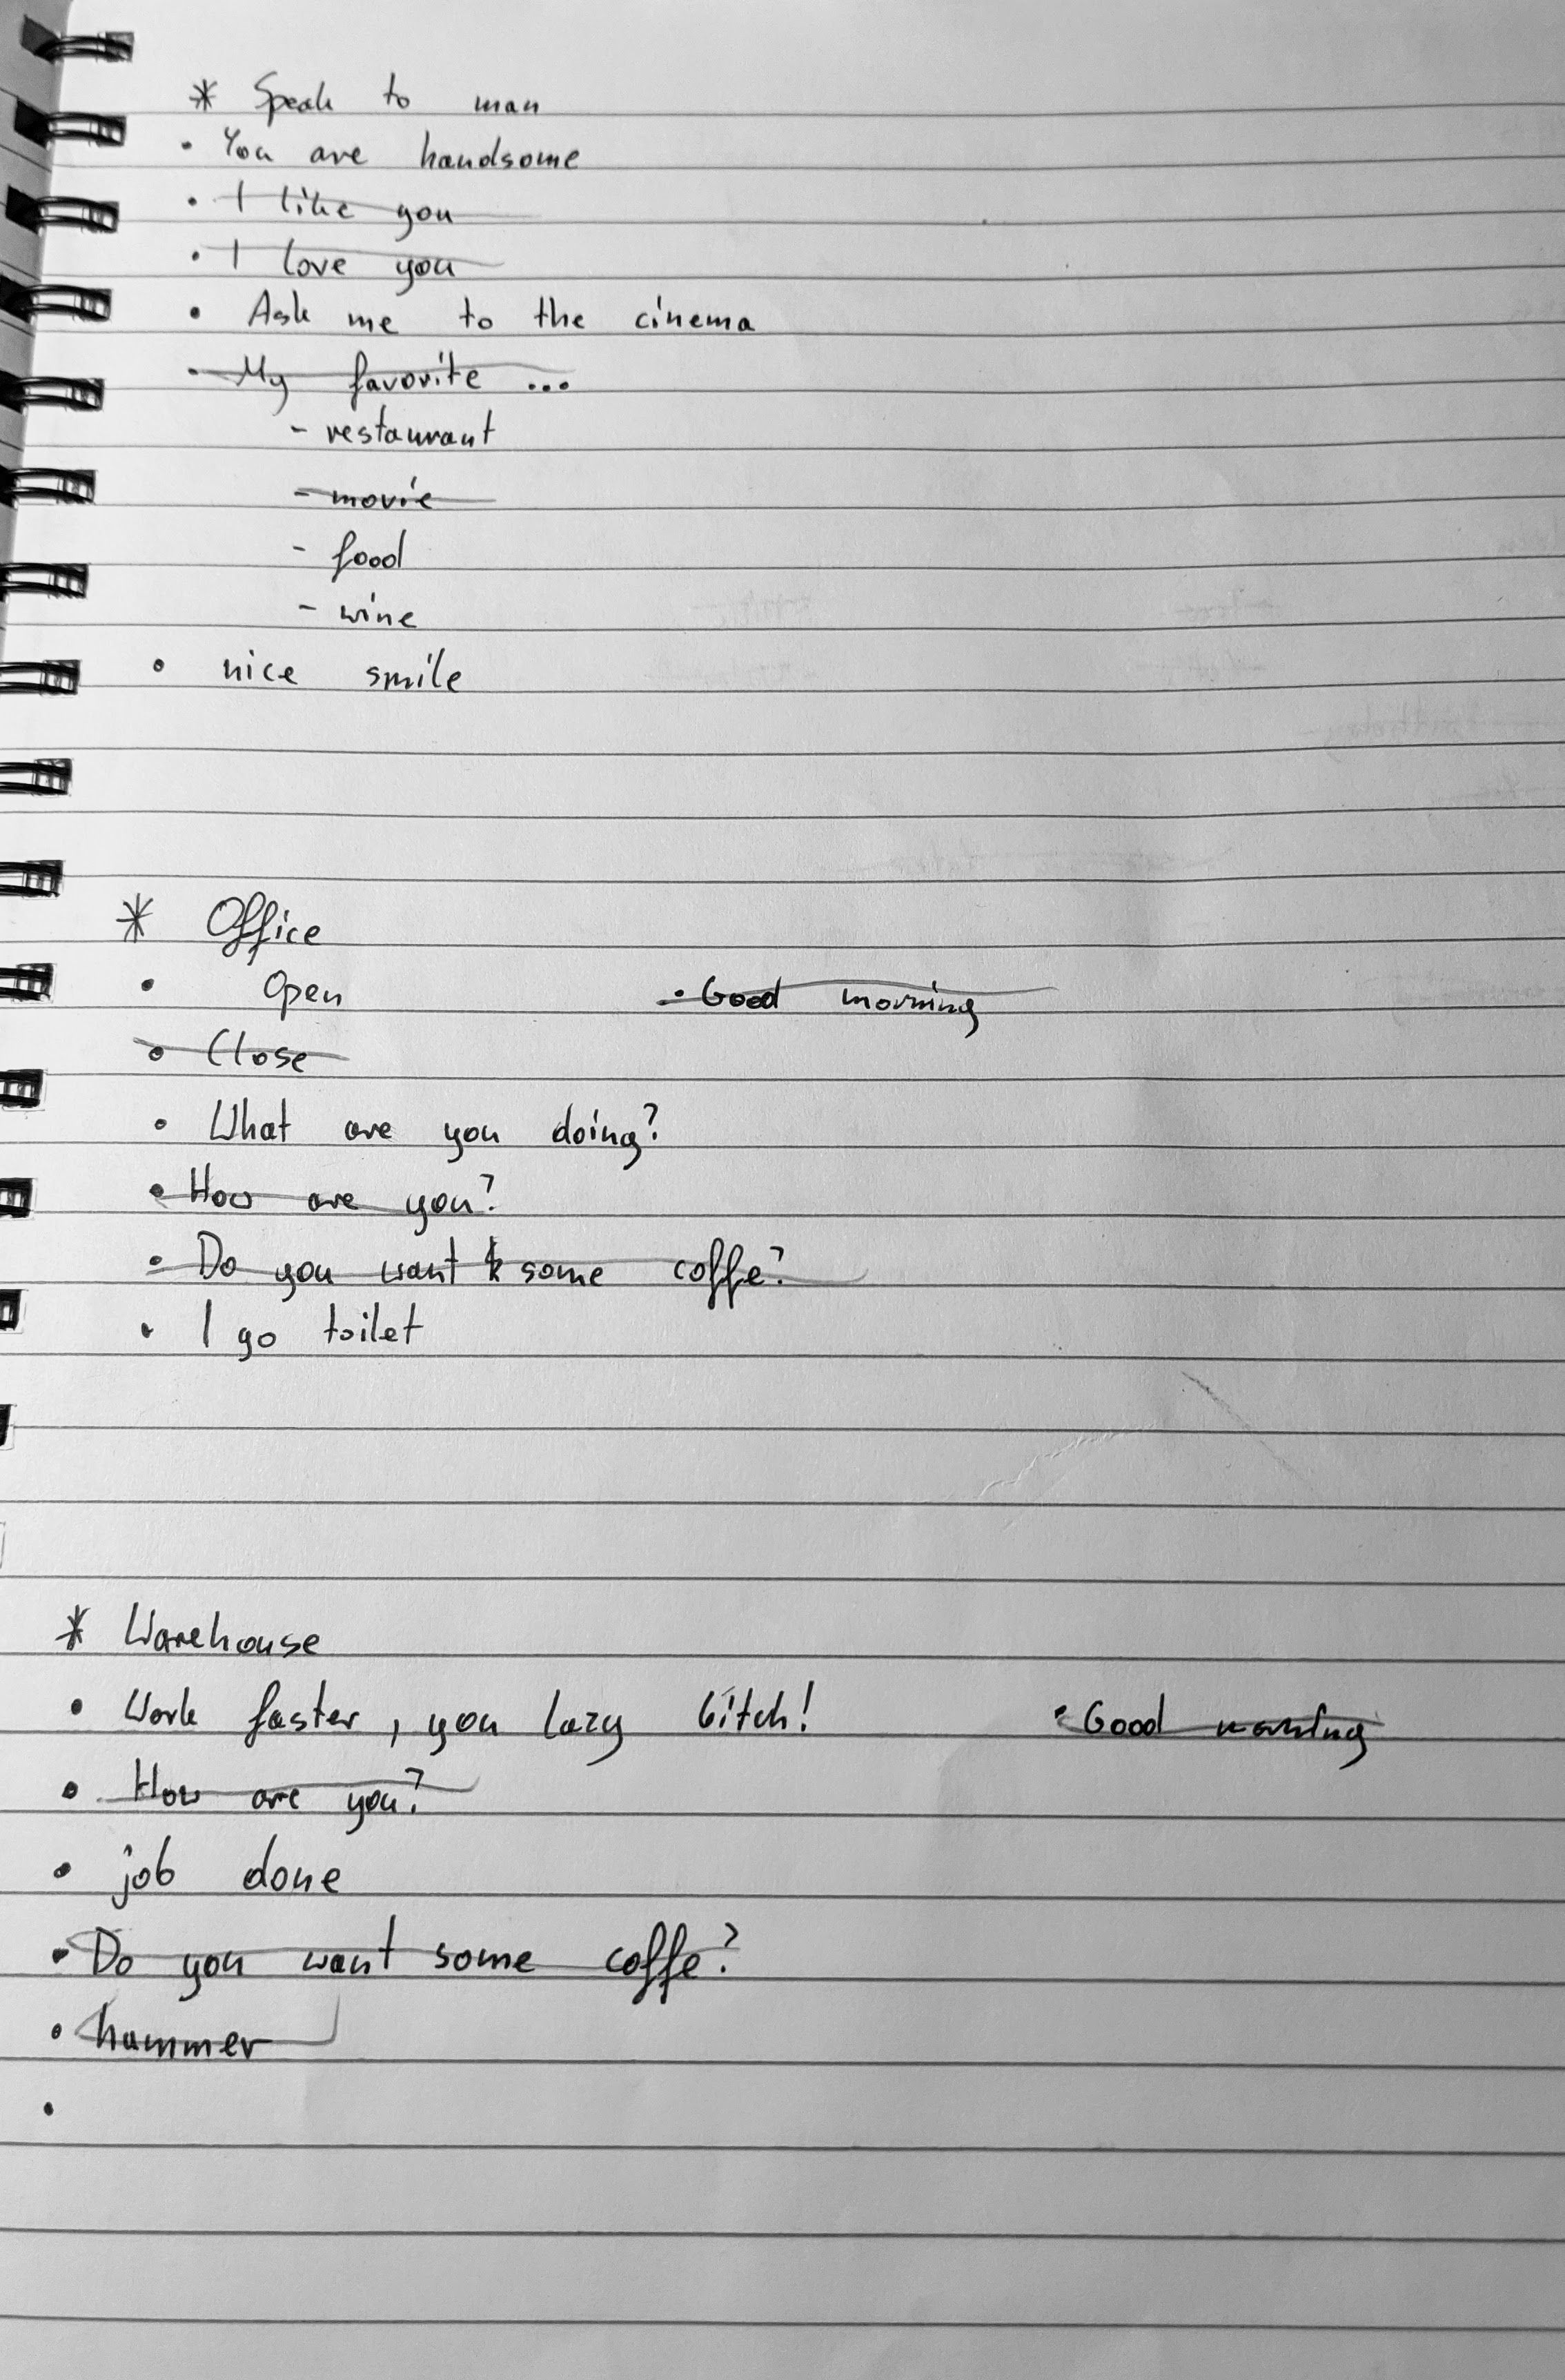 * Speak to man
• You are handsome
• I like you
• I love you
• Ask me to the cinema
• My favorite ...
- restaurant
- movie
- food
- wine
• nice smile
* Office
• Open • Good morning
• Close
• What are you doing?
• How are you?
• Do you want some coffe?
• I go toilet
* Warehouse
• Work faster, you lazy bitch! • Good morning
• How are you?
• job done
• Do you want some coffe?
• hammer
•